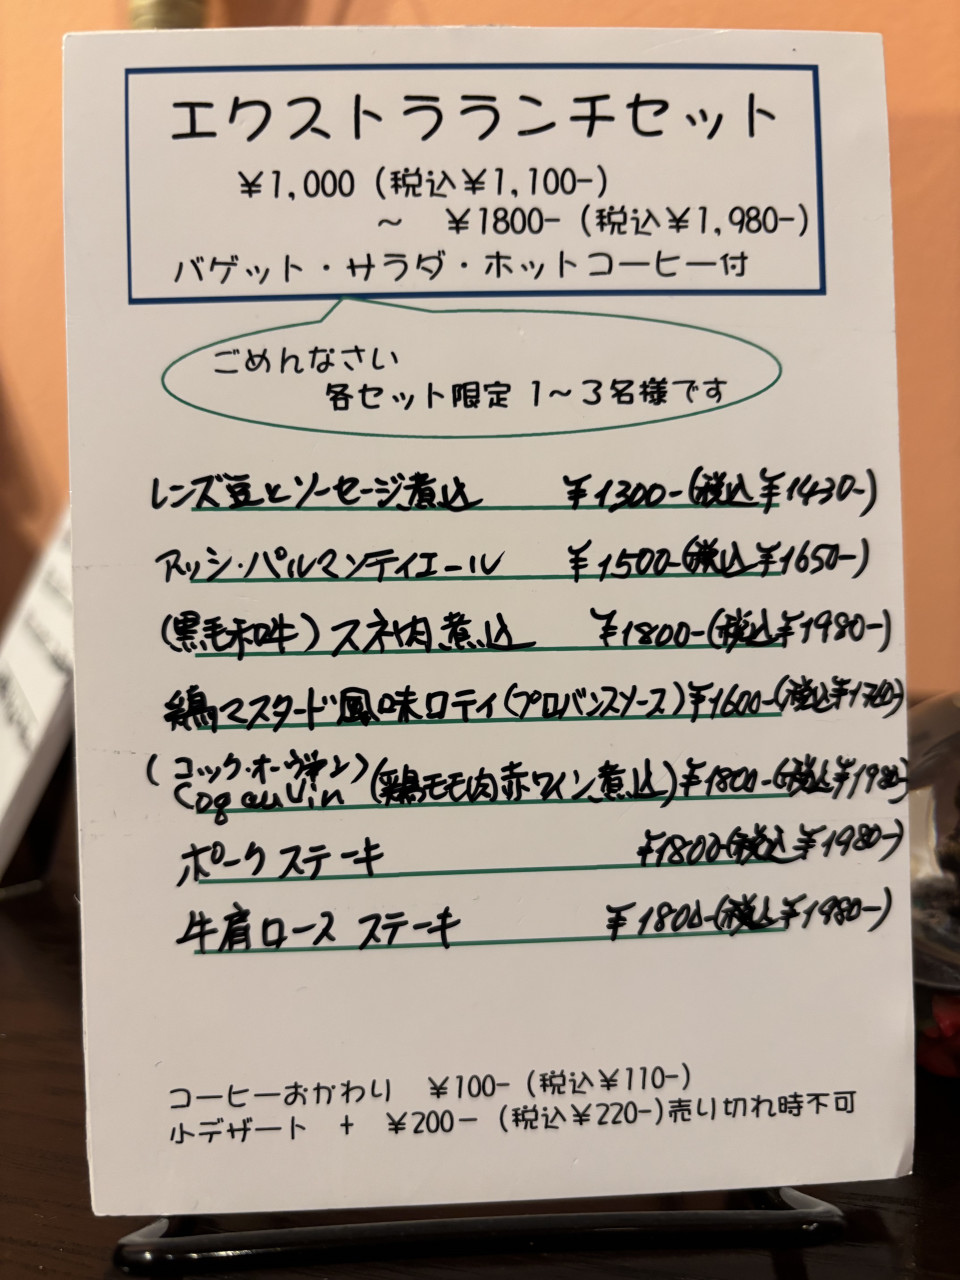 エクストラランチセット
¥1,000 (税込¥1,100-)
～ ¥1800- (税込¥1,980-)
バゲット・サラダ・ホットコーヒー付
ごめんなさい
各セット限定 1～3名様です
レンズ豆とソーセージ煮込 ¥1300-(税込¥1430-)
アッシ・パルマンティエール ¥1500-(税込¥1650-)
(黒毛和牛) スネ肉煮込 ¥1800-(税込¥1980-)
鶏マスタード風味ロティ(プロバンスソース) ¥1600-(税込¥1760-)
(コック・オーヴァン)
Coq au Vin (鶏モモ肉赤ワイン煮込) ¥1800-(税込¥1980-)
ポークステーキ ¥1800-(税込¥1980-)
牛肩ロース ステーキ ¥1800-(税込¥1980-)
コーヒーおかわり ¥100- (税込¥110-)
小デザート + ¥200- (税込¥220-)売り切れ時不可